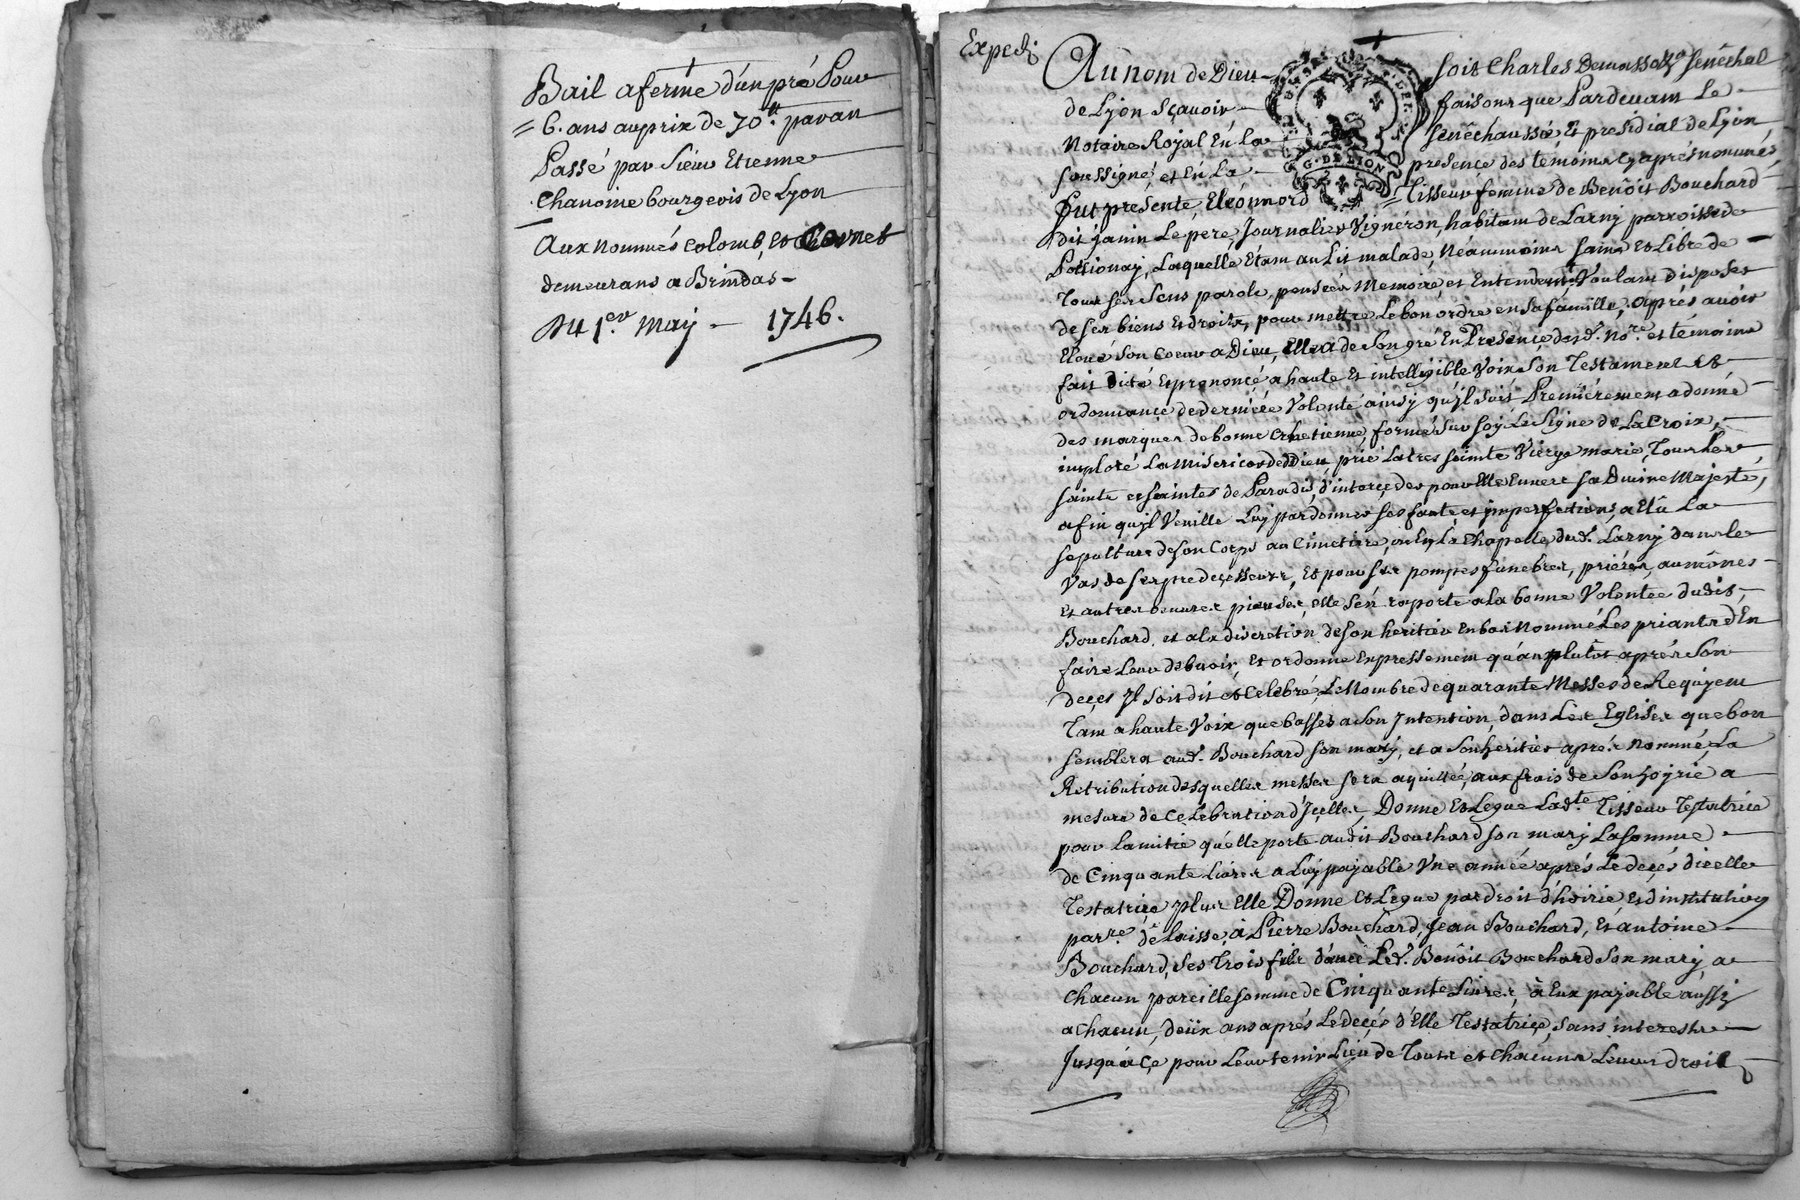 Bail a ferme d'un pré Pour
= 6. ans au prix de 70tt. par an
Passé par Sieur Etienne
Chanoine bourgeois de Lyon
Aux nommés Colomb, et
demeurans a Brindas -
Du 1er. May - 1746.
Expedi
Au nom de Dieu soit Charles Senêchal
de Lyon Sçavoir, faisons que Pardevant Le
Notaire Royal En La Senêchaussée Et présidial de Lyon
soussigné, et En La présence des témoins cy après nommés,
G. DE LION
fut presente, Eléonnord Tisseur femme de Benôit Bouchard
dit janin Le pere, Journalier Vignéron, habitant de Larny parroisse de
Pollionay, Laquelle Etant au Lit malade, Néanmoins saine et Libre de
Tous ses Sens parole, pensées Memoire, et Entendement, Voulant Disposer
de ses biens Et droits, pour mettre Le bon ordre en sa famille, Aprés avoir
Eleué Son Coeur a Dieu, Elle a de Son gré En Presence desd. nore. et témoins
fait Dicté Et prononcé a haute Et intelligible Voix Son Testament et
ordonnance de derniére Volonté ainsy qu'jl Suit Premiérement a donné
des marques de bonne Chretienne, formé Sur Soy Le Signe de La Croix,
imploré La Misericorde de Dieu prié La tres Sainte Vierge marie, Tous Les
saints et saintes de Paradis, d'interceder pour Elle Enuers Sa Diuine Majesté,
afin qu'jl Veuille Luy pardonner Ses fautes, et jmperfections, a Elû La
Sepulture de Son Corps au Cimetiere, ou En La Chapelle dud. Larny dans le
Vas de Ses predecesseurs, Et pour Ses pompes funebres, priéres, aumônes
Et autres oeuures pieuses, elle s'en raporte a la bonne Volontée dudit,
Bouchard, et a la discretion de Son heritier En bas Nommé Les priant d'En
faire Leur debuoir, Et ordonne Expressement qu'au plûtôt aprés Son
deçes Jl Soit dit et Celebré, Le Nombre de quarante Messes de Requiem
Tant a haute Voix que basses a Son Jntention, dans Les Eglises que bon
Semblera aud. Bouchard son mary, et a Son heritier aprés Nommé, La
Retribution desquelles messes Sera aquittée, aux frais de Son hoirie a
mesure de Celebration d'Jcelles, Donne Et Legue Ladte. Tisseur Testatrice
pour L'amitié qu'elle porte audit Bouchard Son mary La Somme
de Cinquante Liures a Luy payable Vne année aprés Le deçés d'icelle
Testatrice plus Elle Donne Et Legue par droit d'hoirie Et d'institution
parre. délaisse, à Pierre Bouchard, Jean Bouchard, Et antoine
Bouchard, Ses Trois fils d'auec Led. Benôit Bouchard Son mary, a
Chacun pareille Somme de Cinquante Liures, à Eux payable aussy
a Chacun, deüx ans aprés Le deçés d'Elle Testatrice, Sans interests
Jusqu'à çe pour Leur tenir Lieu de Tous et Chacuns Leurs droits